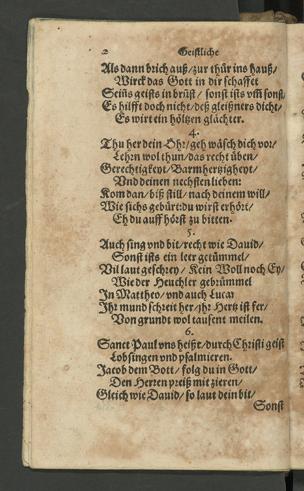 2 Geistliche
Als dann brich auß/zur thür ins hauß/
Wirck das Gott in dir schaffet
Seins geists in brüst/ sonst ists vm̃ sonst/
Es hilfft doch nicht/deß gleißners dicht/
Es wirt ein höltzen glächter.
4.
Thu her dein Ohr/geh wäsch dich vor/
Lehrn wol thun/das recht üben/
Gerechtigkeyt/Barmhertzigheyt/
Vnd deinen nechsten lieben:
Kom dan/biß still/nach deinem will/
Wie sichs gebürt:du wirst erhört/
Eh du auff hörst zu bitten.
5.
Auch sing vnd bit/recht wie Dauid/
Sonst ists ein leer getümmel/
Vil laut geschrey/ Kein Woll noch Ey/
Wie der Heuchler gebrümmel
In Mattheo/vnd auch Lucae
Ihr mund schreit her/jhr Hertz ist fer/
Von grundt wol tausent meilen.
6.
Sanct Paul vns heißt/durch Christi geist
Lobsingen vnd psalmieren.
Jacob dem Bott/ folg du in Gott/
Den Herren preiß mit zieren/
Gleich wie Dauid/so laut dein bit/
Sonst